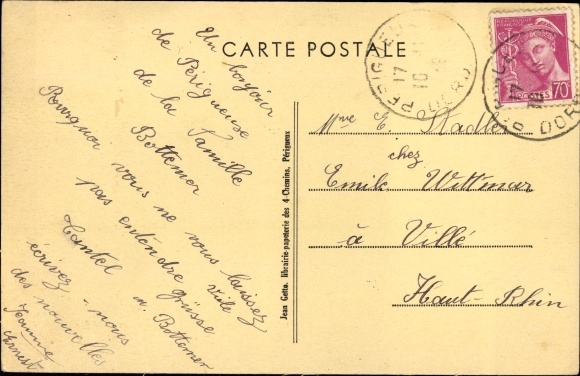 CARTE POSTALE
Un bonjour
de Périgueuse
de la famille
Bottemer
Pourquoi vous ne vous laissez
pas entendre
grüsse
m. Bottemer
écrivez-nous vite
des nouvelles
Jeannine
Ernest
Jean Gette, librairie-papeterie des 4-Chemins, Périgueux
Mme E. Stadler
chez
Emile Wittmar
à Villé
Haut-Rhin
PERIGUEUX
17
10
DORD
POSTES 70c